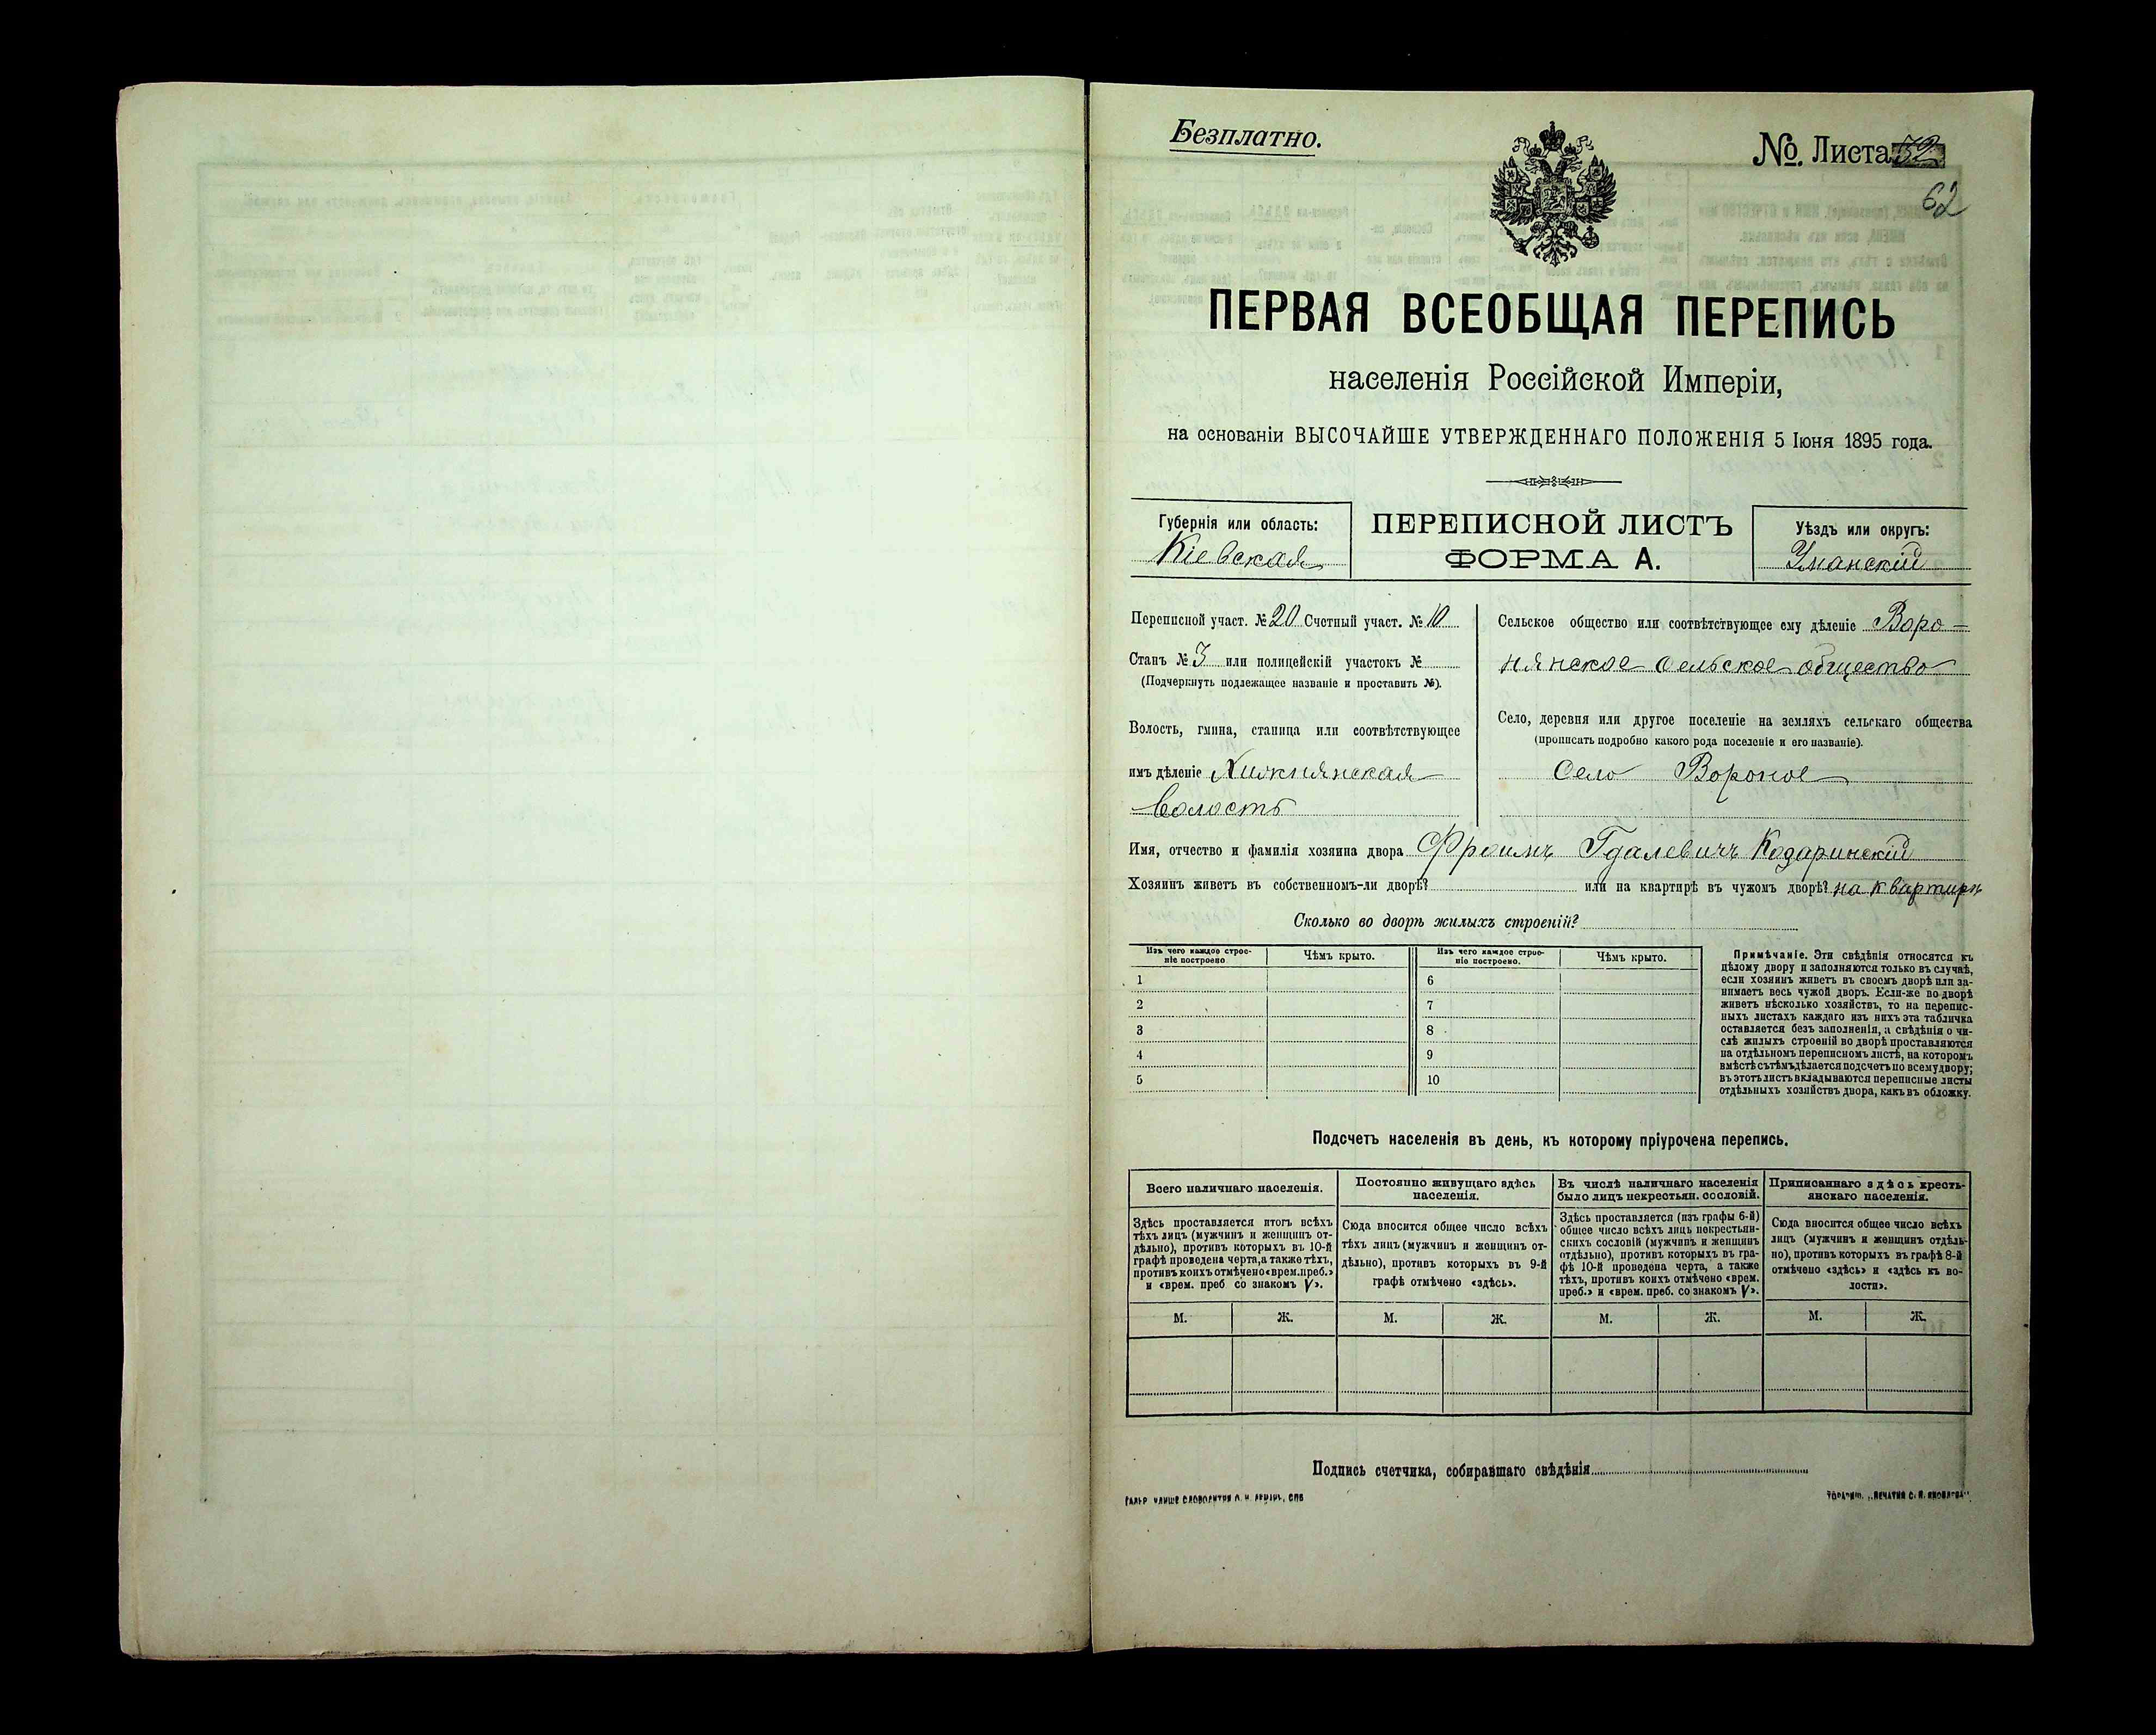 Безплатно.
№. Листа 52
62
ПЕРВАЯ ВСЕОБЩАЯ ПЕРЕПИСЬ
населенія Россійской Имперіи,
на основаніи ВЫСОЧАЙШЕ УТВЕРЖДЕННАГО ПОЛОЖЕНІЯ 5 Іюня 1895 года.
Губернія или область:
Кіевская
ПЕРЕПИСНОЙ ЛИСТЪ
ФОРМА А.
Уѣздъ или округъ:
Уманскій
Переписной участ. № 20 Счетный участ. № 10
Станъ № 3 или полицейскій участокъ №
(Подчеркнуть подлежащее названіе и проставить №).
Волость, гмина, станица или соотвѣтствующее
имъ дѣленіе Хижнянская
волость
Сельское общество или соотвѣтствующее ему дѣленіе Воро=
нянское сельское общество
Село, деревня или другое поселеніе на земляхъ сельскаго общества
(прописать подробно какого рода поселеніе и его названіе).
Село Вороное
Имя, отчество и фамилія хозяина двора Фроимъ Гдалевичъ Кодаринскій
Хозяинъ живетъ въ собственномъ-ли дворѣ? или на квартирѣ въ чужомъ дворѣ? на квартирѣ
Сколько во дворѣ жилыхъ строеній?
Изъ чего каждое строе-
ніе построено
Чѣмъ крыто.
Изъ чего каждое строе-
ніе построено.
Чѣмъ крыто.
1 6
2 7
3 8
4 9
5 10
Примѣчаніе. Эти свѣдѣнія относятся къ
цѣлому двору и заполняются только въ случаѣ,
если хозяинъ живетъ въ своемъ дворѣ или за-
нимаетъ весь чужой дворъ. Если-же во дворѣ
живетъ нѣсколько хозяйствъ, то на перепис-
ныхъ листахъ каждаго изъ нихъ эта табличка
оставляется безъ заполненія, а свѣдѣнія о чи-
слѣ жилыхъ строеній во дворѣ проставляются
на отдѣльномъ переписномъ листѣ, на которомъ
вмѣстѣ съ тѣмъ дѣлается подсчетъ по всему двору;
въ этотъ листъ вкладываются переписные листы
отдѣльныхъ хозяйствъ двора, какъ въ обложку.
Подсчетъ населенія въ день, къ которому пріурочена перепись.
Всего наличнаго населенія.
Здѣсь проставляется итогъ всѣхъ
тѣхъ лицъ (мужчинъ и женщинъ от-
дѣльно), противъ которыхъ въ 10-й
графѣ проведена черта, а также тѣхъ,
противъ коихъ отмѣчено «врем. преб.»
и «врем. преб. со знакомъ V».
Постоянно живущаго здѣсь
населенія.
Сюда вносится общее число всѣхъ
тѣхъ лицъ (мужчинъ и женщинъ от-
дѣльно), противъ которыхъ въ 9-й
графѣ отмѣчено «здѣсь».
Въ числѣ наличнаго населенія
было лицъ некрестьян. сословій.
Здѣсь проставляется (изъ графы 6-й)
общее число всѣхъ лицъ некрестьян-
скихъ сословій (мужчинъ и женщинъ
отдѣльно), противъ которыхъ въ гра-
фѣ 10-й проведена черта, а также
тѣхъ, противъ коихъ отмѣчено «врем.
преб.» и «врем. преб. со знакомъ V».
Приписаннаго здѣсь кресть-
янскаго населенія.
Сюда вносится общее число всѣхъ
лицъ (мужчинъ и женщинъ отдѣль-
но), противъ которыхъ въ графѣ 8-й
отмѣчено «здѣсь» и «здѣсь къ во-
лости».
М. Ж. М. Ж. М. Ж. М. Ж.
Подпись счетчика, собиравшаго свѣдѣнія